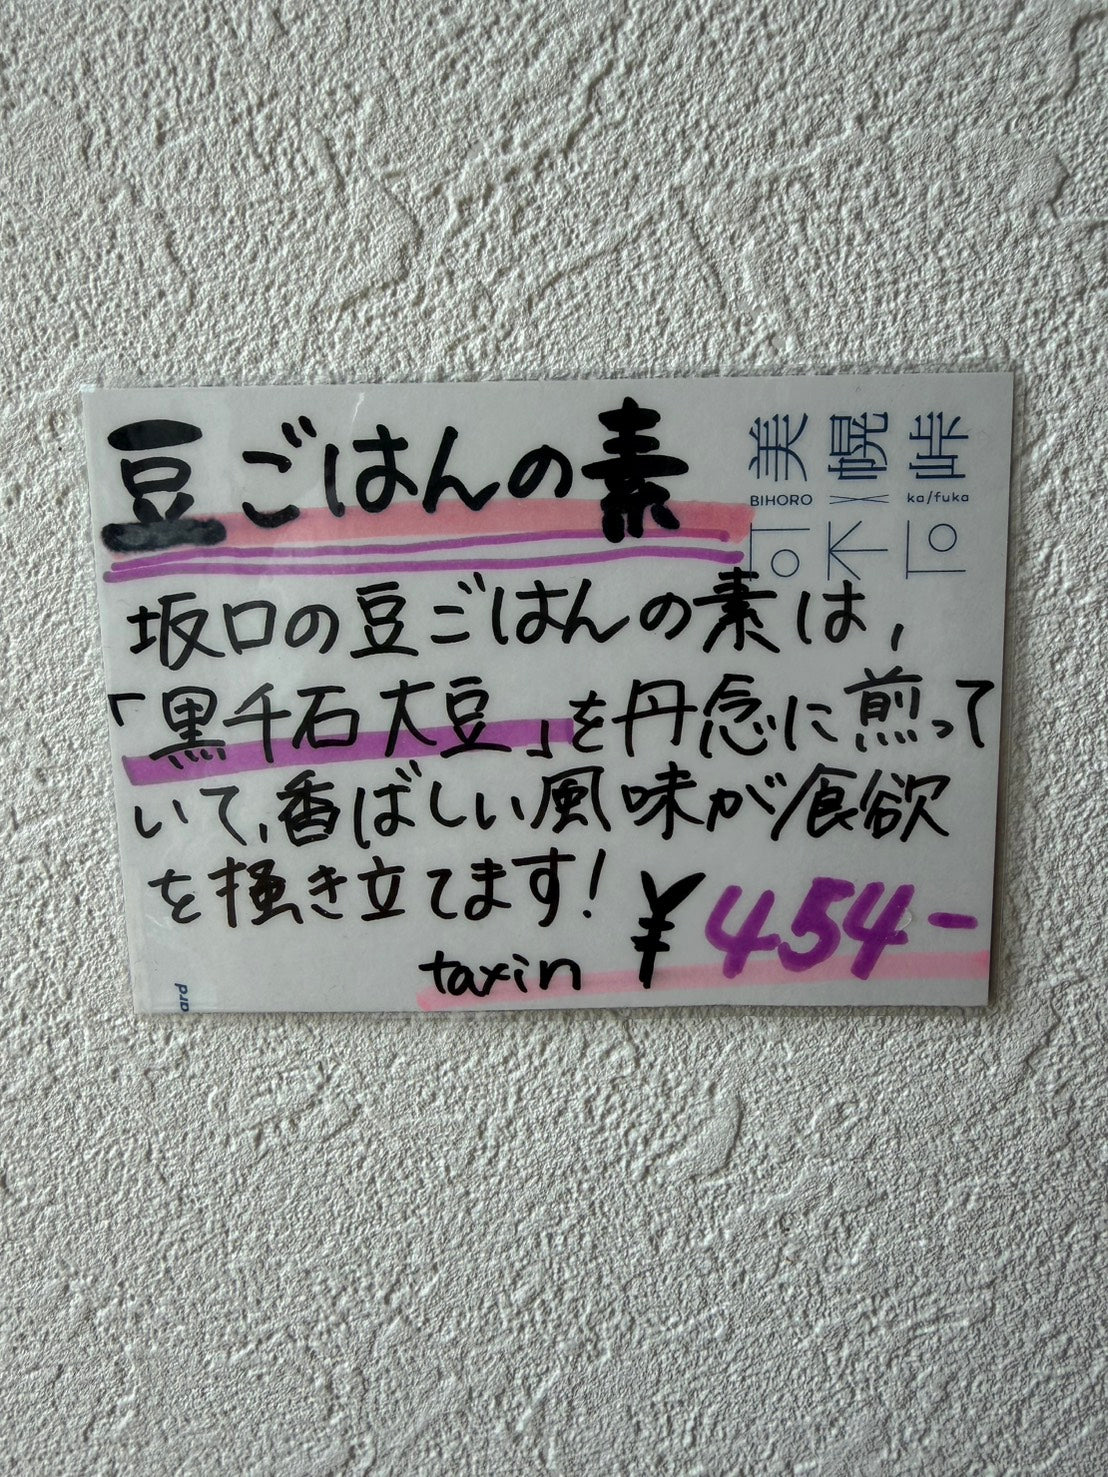 豆ごはんの素
坂口の豆ごはんの素は,
「黒千石大豆」を丹念に煎って
いて、香ばしい風味が食欲
を掻き立てます!
taxin ¥454-
美幌峠
BIHORO ka/fuka
ard